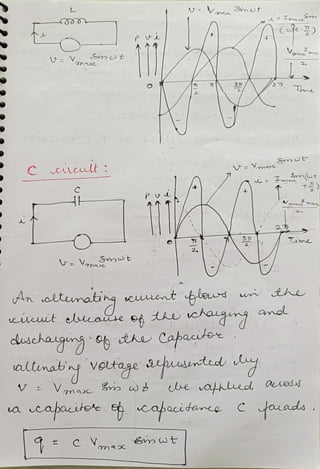 L
i
V = Vmax Sin ωt
P V i
V = Vmax Sin ωt
i = Imax Sin
(ωt - π/2)
Vmax Imax / 2
+ +
- -
0 π/2 π 3π/2 2π Time
C circuit :
C
i
V = Vmax Sin ωt
P V i
V = Vmax Sin ωt
i = Imax Sin (ωt
+ π/2)
Vmax Imax / 2
+ +
- -
0 π/2 π 3π/2 2π Time
An alternating current flows in the
circuit because of the charging and
discharging of the Capacitor.
alternating voltage represented by
V = Vmax Sin ωt be applied across
a capacitor of capacitance C farads.
q = C Vmax Sin ωt